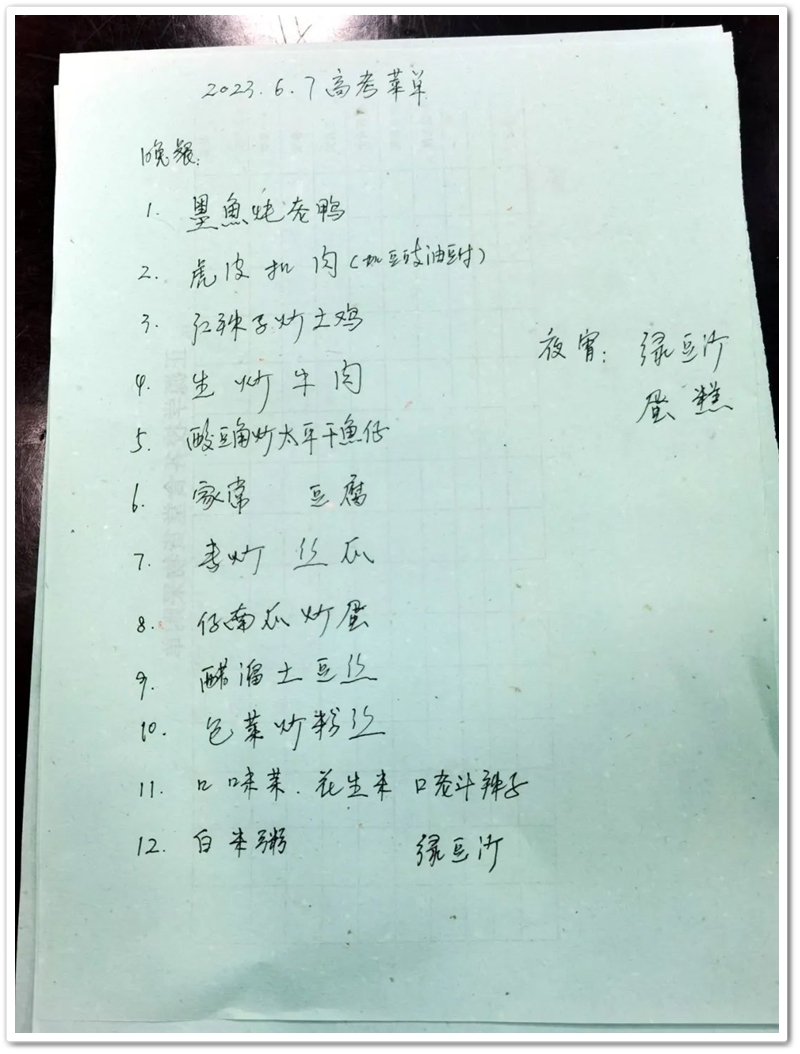 2023.6.7高考菜单
晚餐:
1. 墨魚炖老鸭
2. 虎皮扣肉(加豆豉油豆付)
3. 红辣子炒土鸡
4. 生炒牛肉
5. 酸豆角炒太平干魚仔
6. 家常 豆腐
7. 素炒 丝瓜
8. 仔南瓜炒蛋
9. 醋溜土豆丝
10. 包菜炒粉丝
11. 口味菜. 花生米 口老汁辣子
12. 白米粥 绿豆沙
夜宵: 绿豆沙
蛋糕